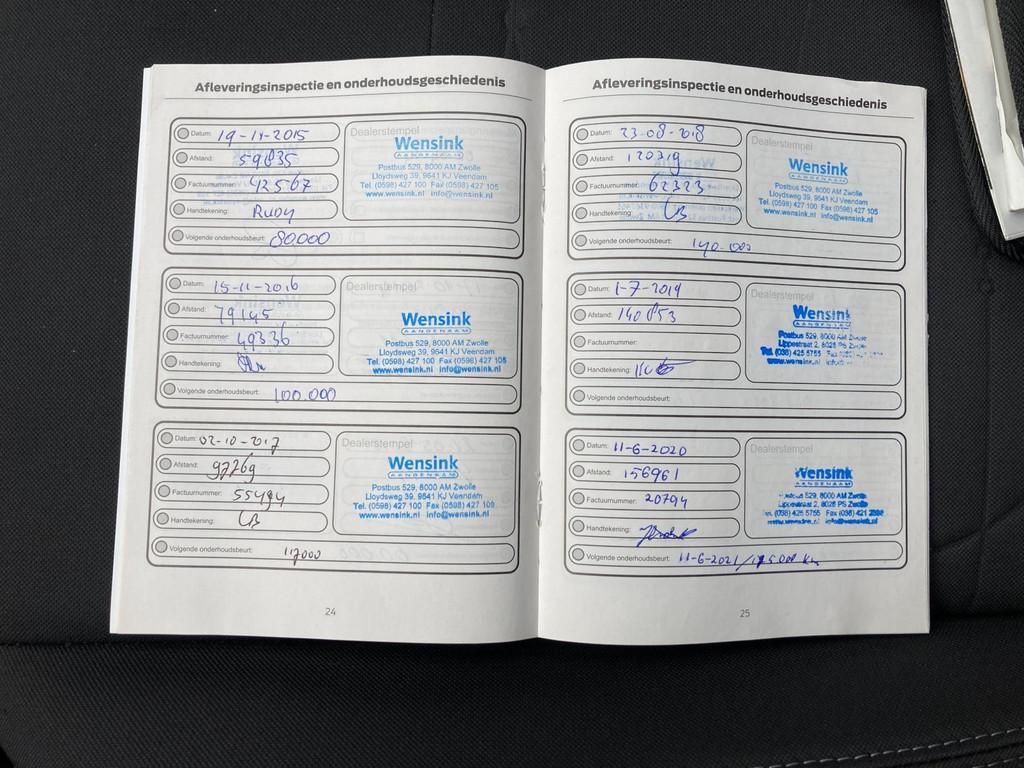 Afleveringsinspectie en onderhoudsgeschiedenis
Datum: 19-11-2015
Afstand: 59835
Factuurnummer: 42567
Handtekening: Rudy
Volgende onderhoudsbeurt: 80.000
Dealerstempel
Wensink
AANGENAAM
Postbus 529, 8000 AM Zwolle
Lloydsweg 39, 9641 KJ Veendam
Tel. (0598) 427 100 Fax (0598) 427 105
www.wensink.nl info@wensink.nl
Datum: 15-11-2016
Afstand: 79145
Factuurnummer: 49336
Handtekening:
Volgende onderhoudsbeurt: 100.000
Dealerstempel
Wensink
AANGENAAM
Postbus 529, 8000 AM Zwolle
Lloydsweg 39, 9641 KJ Veendam
Tel. (0598) 427 100 Fax (0598) 427 105
www.wensink.nl info@wensink.nl
Datum: 02-10-2017
Afstand: 97269
Factuurnummer: 55494
Handtekening:
Volgende onderhoudsbeurt: 117000
Dealerstempel
Wensink
AANGENAAM
Postbus 529, 8000 AM Zwolle
Lloydsweg 39, 9641 KJ Veendam
Tel. (0598) 427 100 Fax (0598) 427 105
www.wensink.nl info@wensink.nl
24
Afleveringsinspectie en onderhoudsgeschiedenis
Datum: 23-08-2018
Afstand: 120319
Factuurnummer: 62323
Handtekening:
Volgende onderhoudsbeurt: 140.000
Dealerstempel
Wensink
AANGENAAM
Postbus 529, 8000 AM Zwolle
Lloydsweg 39, 9641 KJ Veendam
Tel. (0598) 427 100 Fax (0598) 427 105
www.wensink.nl info@wensink.nl
Datum: 1-7-2019
Afstand: 140853
Factuurnummer:
Handtekening:
Volgende onderhoudsbeurt:
Dealerstempel
Wensink
AANGENAAM
Postbus 529, 8000 AM Zwolle
Lippestraat 2, 8028 PS Zwolle
Tel. (038) 425 5755 Fax
www.wensink.nl
Datum: 11-6-2020
Afstand: 156961
Factuurnummer: 20794
Handtekening:
Volgende onderhoudsbeurt: 11-6-2021 / 175000 km
Dealerstempel
Wensink
AANGENAAM
Postbus 529, 8000 AM Zwolle
Lippestraat 2, 8028 PS Zwolle
Tel. (038) 425 5755 Fax (038) 421
www.wensink.nl info@wensink.nl
25